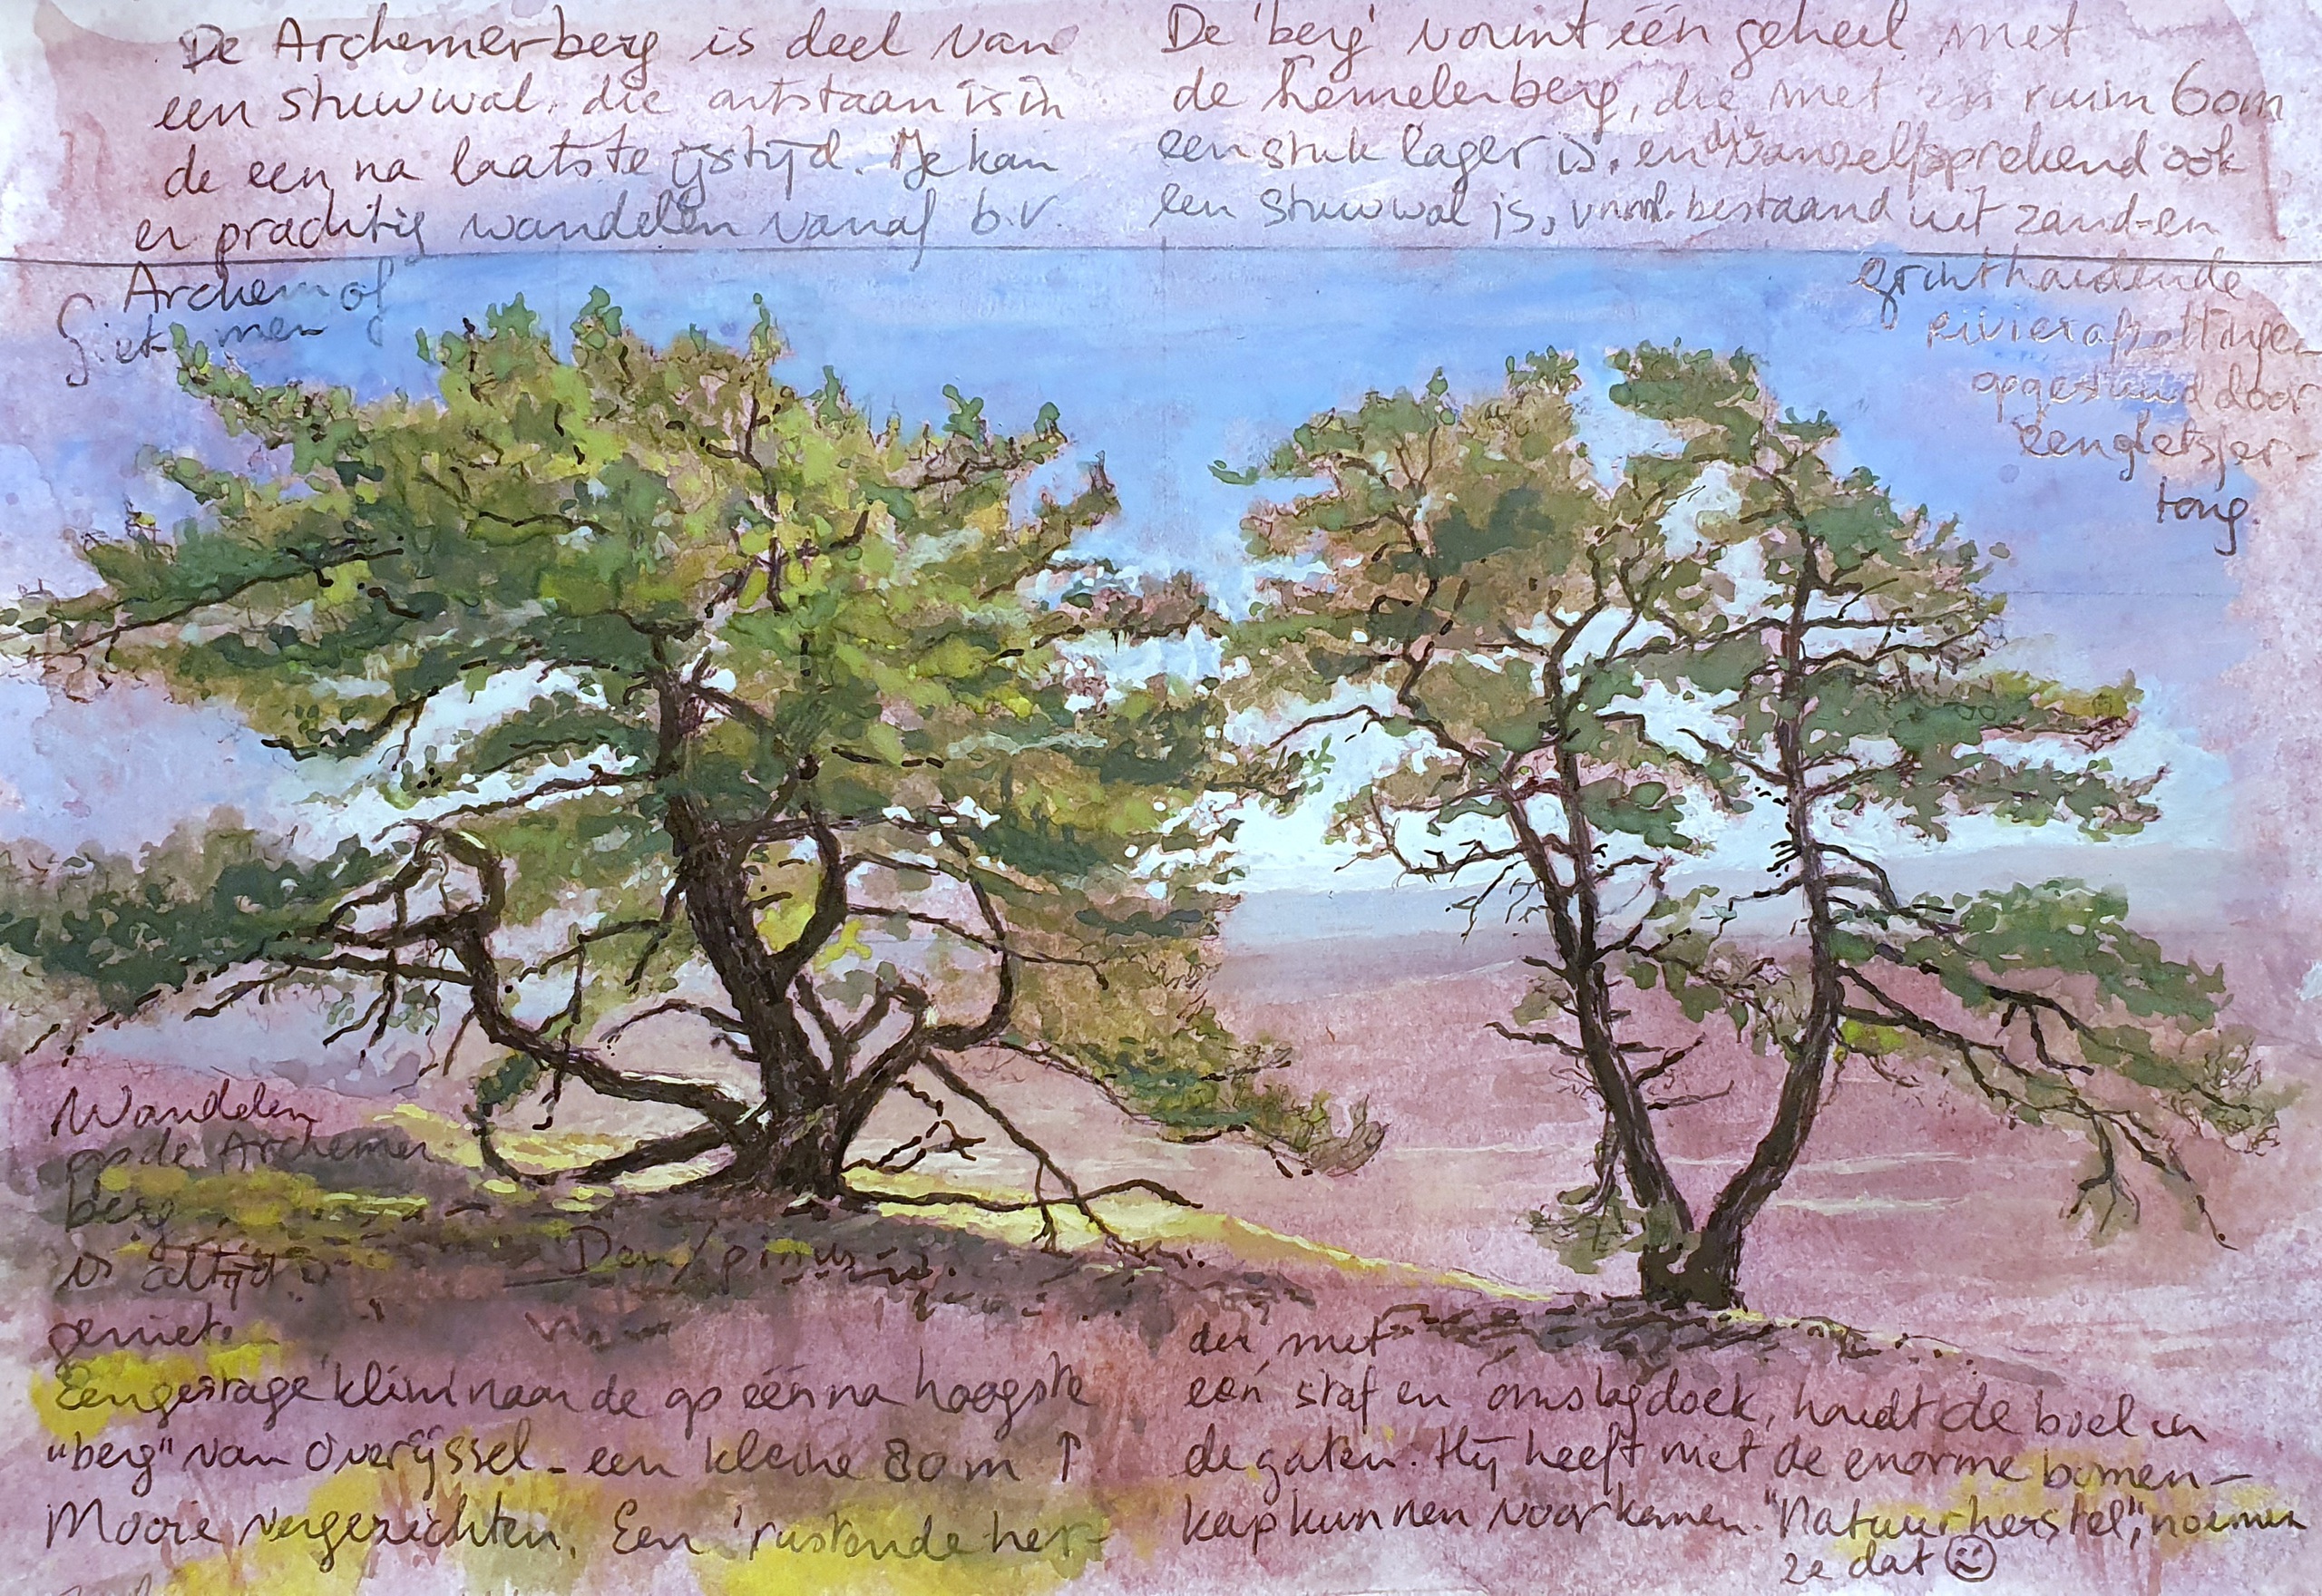 De Archemerberg is deel van
een stuwwal, die ontstaan is in
de een na laatste ijstijd. Je kan
er prachtig wandelen vanaf b.v.
Archem of
Giethmen
De 'berg' vormt één geheel met
de Lemelerberg, die met zn ruim 60m
een stuk lager is, en die vanzelfsprekend ook
een stuwwal is, vnml. bestaand uit zand-en
grinthoudende
rivierafzettingen
opgestuwd door
een gletsjer-
tong.
Wandelen
op de Archemer
berg
is altijd
geniet
Den/pinus
Een gestage klim naar de op één na hoogste
"berg" van Overijssel - een kleine 80m ↑
Mooie vergezichten. Een 'rustende her-
der' met
een staf en omslagdoek, houdt de boel in
de gaten. Hij heeft niet de enorme bomen-
kap kunnen voorkomen. "Natuurherstel", noemen
ze dat ☹